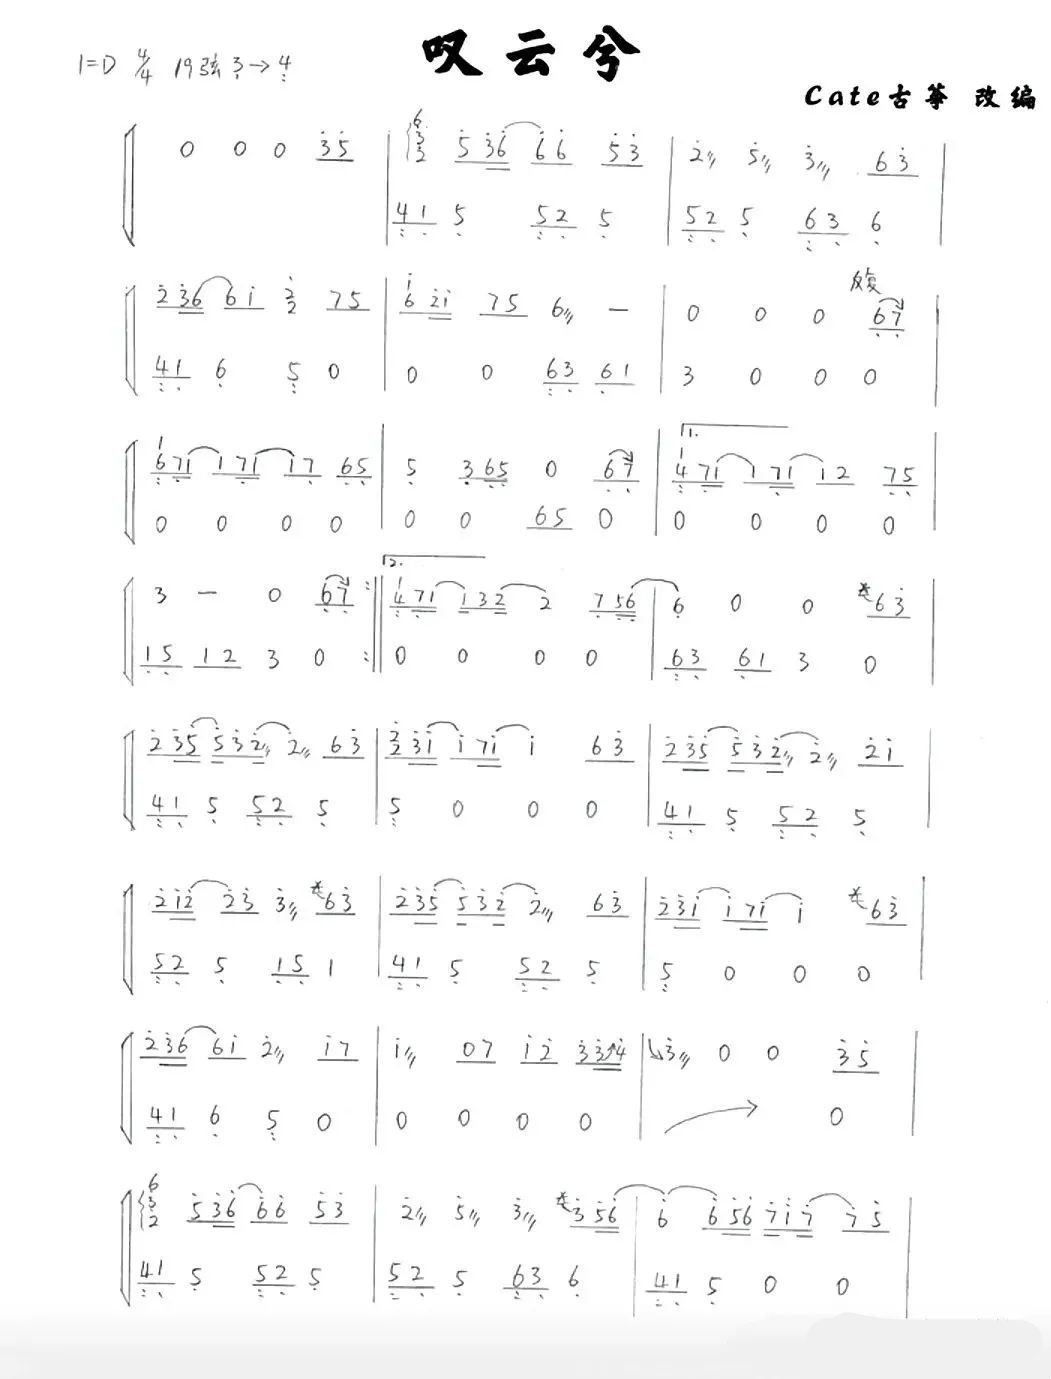 叹云兮
1=D 4/4 19弦 3→4
Cate古筝 改编
0 0 0 35 | 6 3 2 5 36 66 53 | 2 5 3 63 |
41 5 52 5 | 52 5 63 6 |
2 36 61 2 2 75 | 1 6 21 75 6 — | 0 0 0 反复 67 |
41 6 5 0 | 0 0 63 61 | 3 0 0 0 |
1 6 71 1 71 17 65 | 5 3 65 0 67 | 1. 1 4 71 1 71 12 75 |
0 0 0 0 | 0 0 65 0 | 0 0 0 0 |
3 — 0 67 :|| 2. 1 4 71 1 32 2 7 56 | 6 0 0 63 |
15 12 3 0 :|| 0 0 0 0 | 63 61 3 0 |
2 35 5 32 2 63 | 2 2 31 1 71 1 63 | 2 35 5 32 2 21 |
41 5 52 5 | 5 0 0 0 | 41 5 52 5 |
2 12 23 3 63 | 2 35 5 32 2 63 | 2 31 1 71 1 63 |
52 5 15 1 | 41 5 52 5 | 5 0 0 0 |
2 36 61 2 17 | 1 07 12 3 3↗4 | ↘3 0 0 35 |
41 6 5 0 | 0 0 0 0 | 0 |
6 3 2 5 36 66 53 | 2 5 3 3 56 | 6 6 56 7 17 75 |
41 5 52 5 | 52 5 63 6 | 41 5 0 0 |